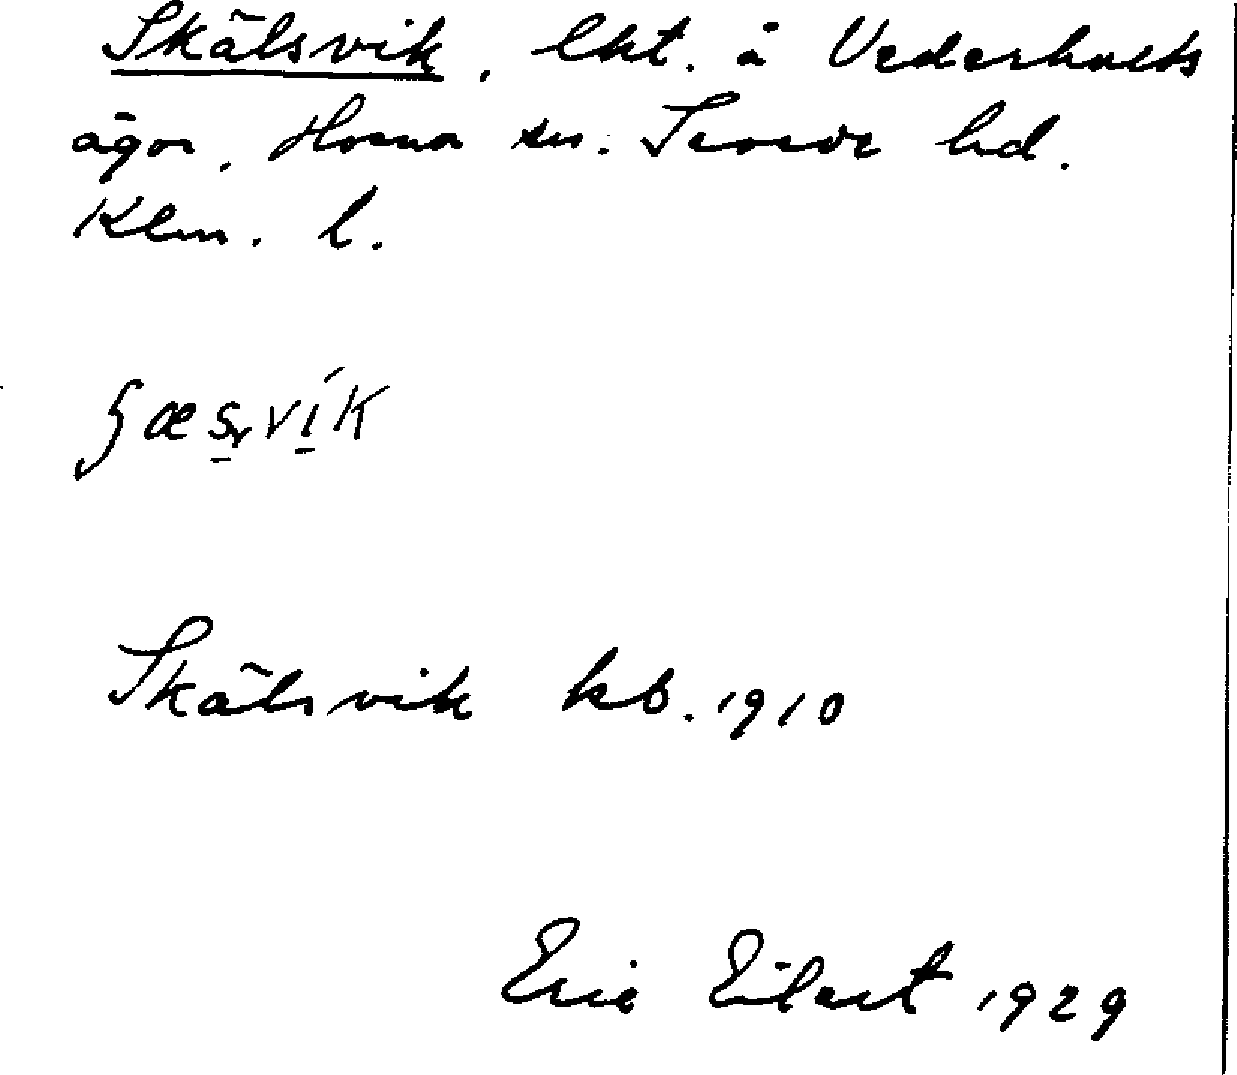 Skälsvik, lht. å Vederhults
ägor, Horna sn. Sevede hd.
Klm. l.
Skälsvik kb. 1910
Eric Eilert 1929